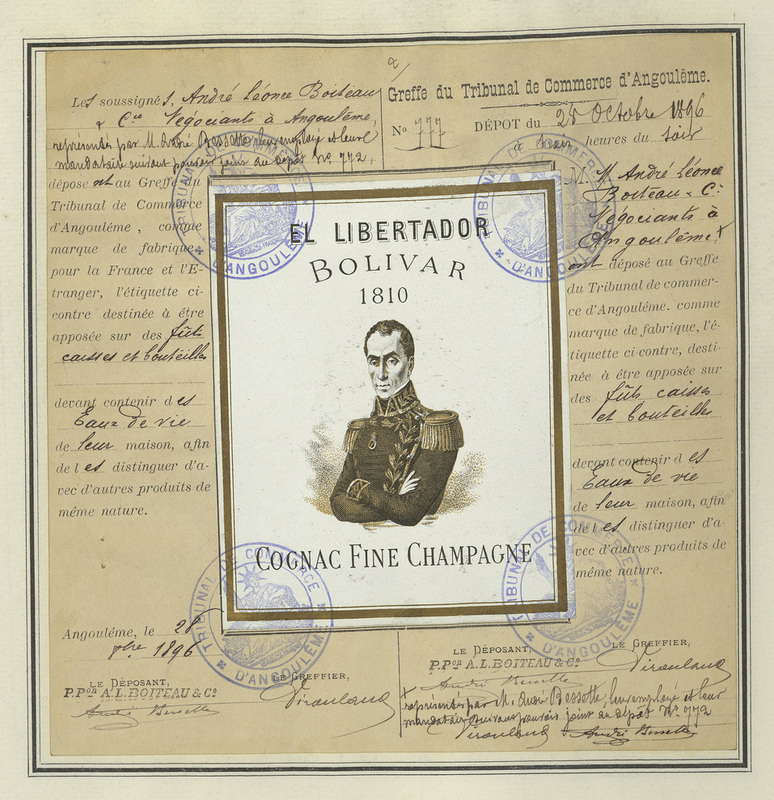 Les soussignés, André Léonce Boiteau
& Cie Négociants à Angoulême,
représentés par M. André Bessette, leur employé et leur
mandataire suivant pouvoir joint au dépôt No 772,
déposent au Greffe du
Tribunal de Commerce
d'Angoulême, comme
marque de fabrique,
pour la France et l'E-
tranger, l'étiquette ci-
contre destinée à être
apposée sur des fûts
caisses et bouteilles
devant contenir des
Eaux de vie
de leur maison, afin
de les distinguer d'a-
vec d'autres produits de
même nature.
Angoulême, le 28
8bre 1896
LE DÉPOSANT,
P.Pon A.L. BOITEAU & Co
André Bessette
LE GREFFIER,
Greffe du Tribunal de Commerce d'Angoulême.
No 777
DÉPOT du 28 Octobre 1896
à trois heures du soir
M. M. André Léonce
Boiteau & Cie
Négociants à
Angoulême, +
ont déposé au Greffe
du Tribunal de commer-
ce d'Angoulême. comme
marque de fabrique, l'é-
tiquette ci-contre, desti-
née à être apposée sur
des fûts, caisses
et bouteilles
devant contenir des
Eaux de vie
de leur maison, afin
de les distinguer d'a-
vec d'autres produits de
même nature.
LE DÉPOSANT,
P.Pon A.L. BOITEAU & Co
André Bessette
LE GREFFIER,
+ représentés par M. André Bessette, leur employé et leur
mandataire suivant pouvoir joint au dépôt No 772
André Bessette
EL LIBERTADOR
BOLIVAR
1810
COGNAC FINE CHAMPAGNE
TRIBUNAL DE COMMERCE
D'ANGOULÊME
TRIBUNAL DE COMMERCE
D'ANGOULÊME
TRIBUNAL DE COMMERCE
D'ANGOULÊME
TRIBUNAL DE COMMERCE
D'ANGOULÊME